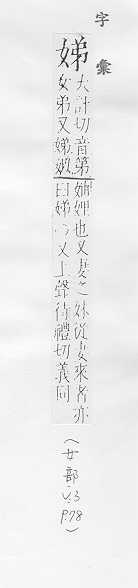 字彙
娣
大計切音第娣姒也又妻之妹從妻來者亦
女弟又娣姒曰娣以又上聲待禮切義同
(女部
V.3
P.78)